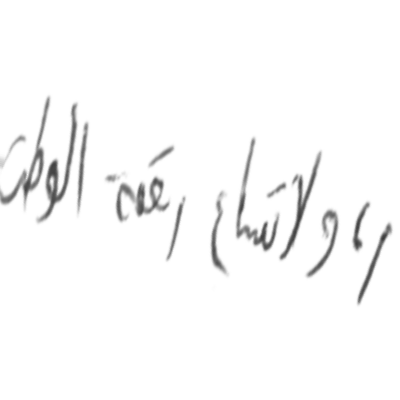 ولاتساع رقعة الوطن